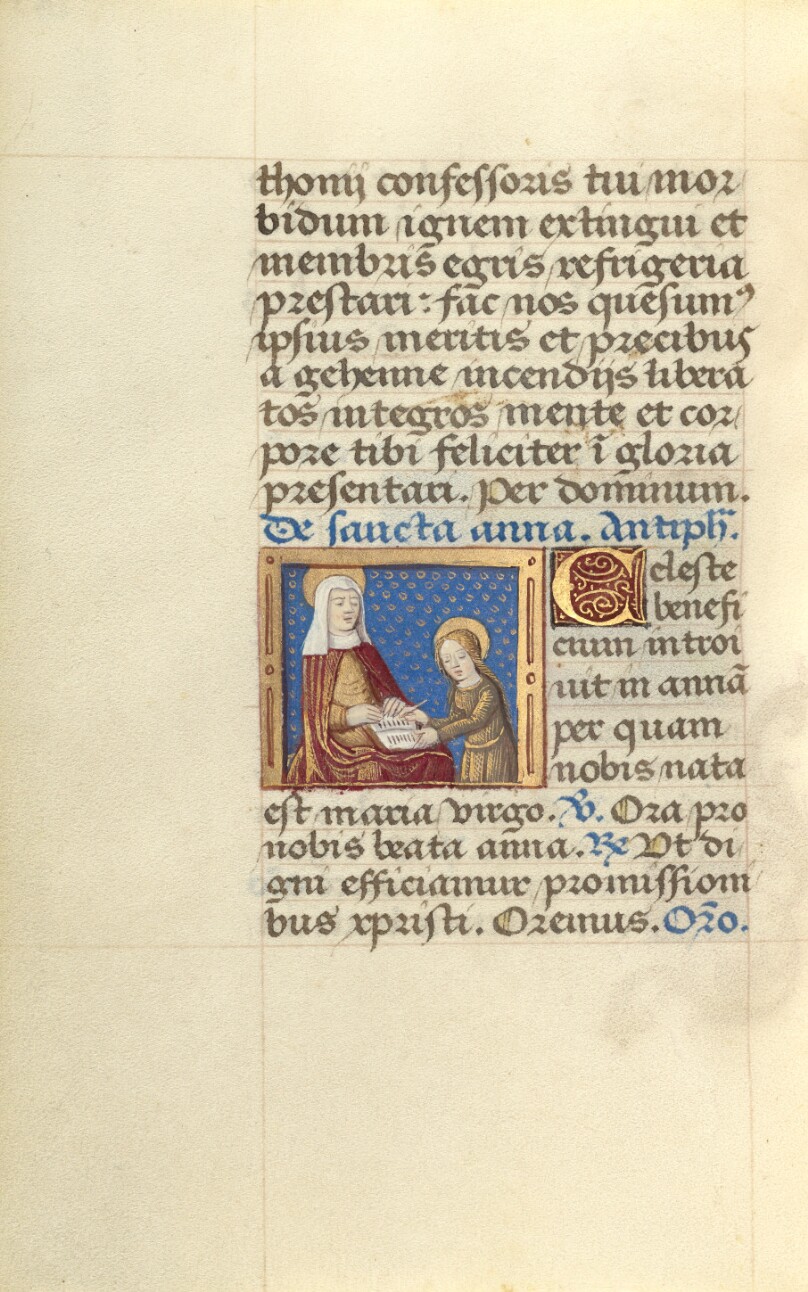 thonij confessoris tui mor
bidum ignem extingui et
membris̄ egris refrigeria
prestari: fac nos quesumꝰ
ipsius meritis et precibus
a gehenne incendijs libera
tos integros mente et cor
pore tibi feliciter ī gloria
presentari. Per dominum.
De sancta anna. Antiph̄.
Celeste
benefi
cium introi
uit in annā
per quam
nobis nata
est maria virgo. ℣. Ora pro
nobis beata anna. ℟ Vt di
gni efficiamur promissioni
bus xpristi. Oremus. Orō.